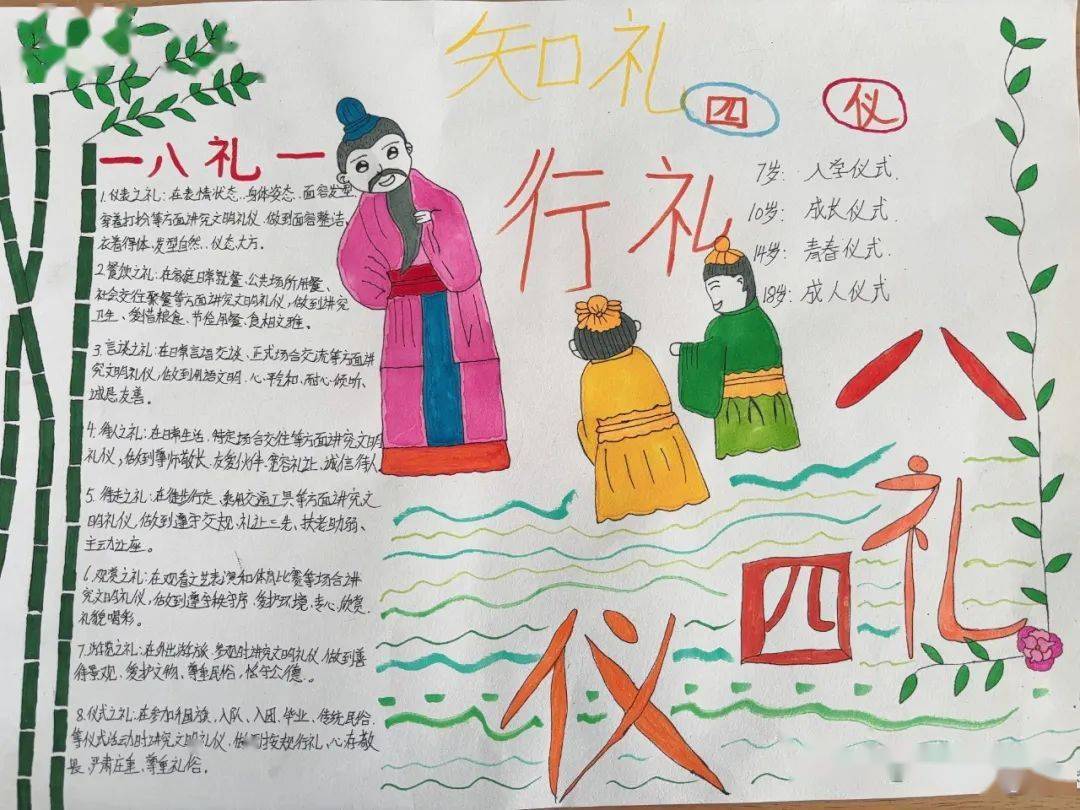 知礼
行礼
四仪
7岁：入学仪式.
10岁：成长仪式.
14岁：青春仪式.
18岁：成人仪式
一八礼一
1.仪表之礼：在表情状态、身体姿态、面容发型、
穿着打扮等方面讲究文明礼仪，做到面容整洁、
衣着得体、发型自然、仪态大方。
2.餐饮之礼：在家庭日常就餐、公共场所用餐、
社会交往聚餐等方面讲究文明礼仪，做到讲究
卫生、爱惜粮食、节俭用餐、食相文雅。
3.言谈之礼：在日常言语交谈、正式场合交流等方面讲
究文明礼仪，做到用语文明、心平气和、耐心倾听、
诚恳友善。
4.待人之礼：在日常生活、特定场合交往等方面讲究文明
礼仪，做到尊师敬长、友爱伙伴、宽容礼让、诚信待人
5.行走之礼：在徒步行走、乘用交通工具等方面讲究文
明礼仪，做到遵守交规、礼让三先、扶老助弱、
主动让座。
6.观赏之礼：在观看文艺表演和体育比赛等场合讲
究文明礼仪，做到遵守秩守序、爱护环境、专心欣赏、
礼貌喝彩。
7.游览之礼：在外出游旅、参观时讲究文明礼仪，做到善
待景观、爱护文物、尊重民俗，恪守公德。
8.仪式之礼：在参加
入队、入团、毕业、传统民俗
等仪式活动时讲究文明礼仪，做到按规行礼、心存敬
畏、严肃庄重、尊重礼俗。
八礼
四仪